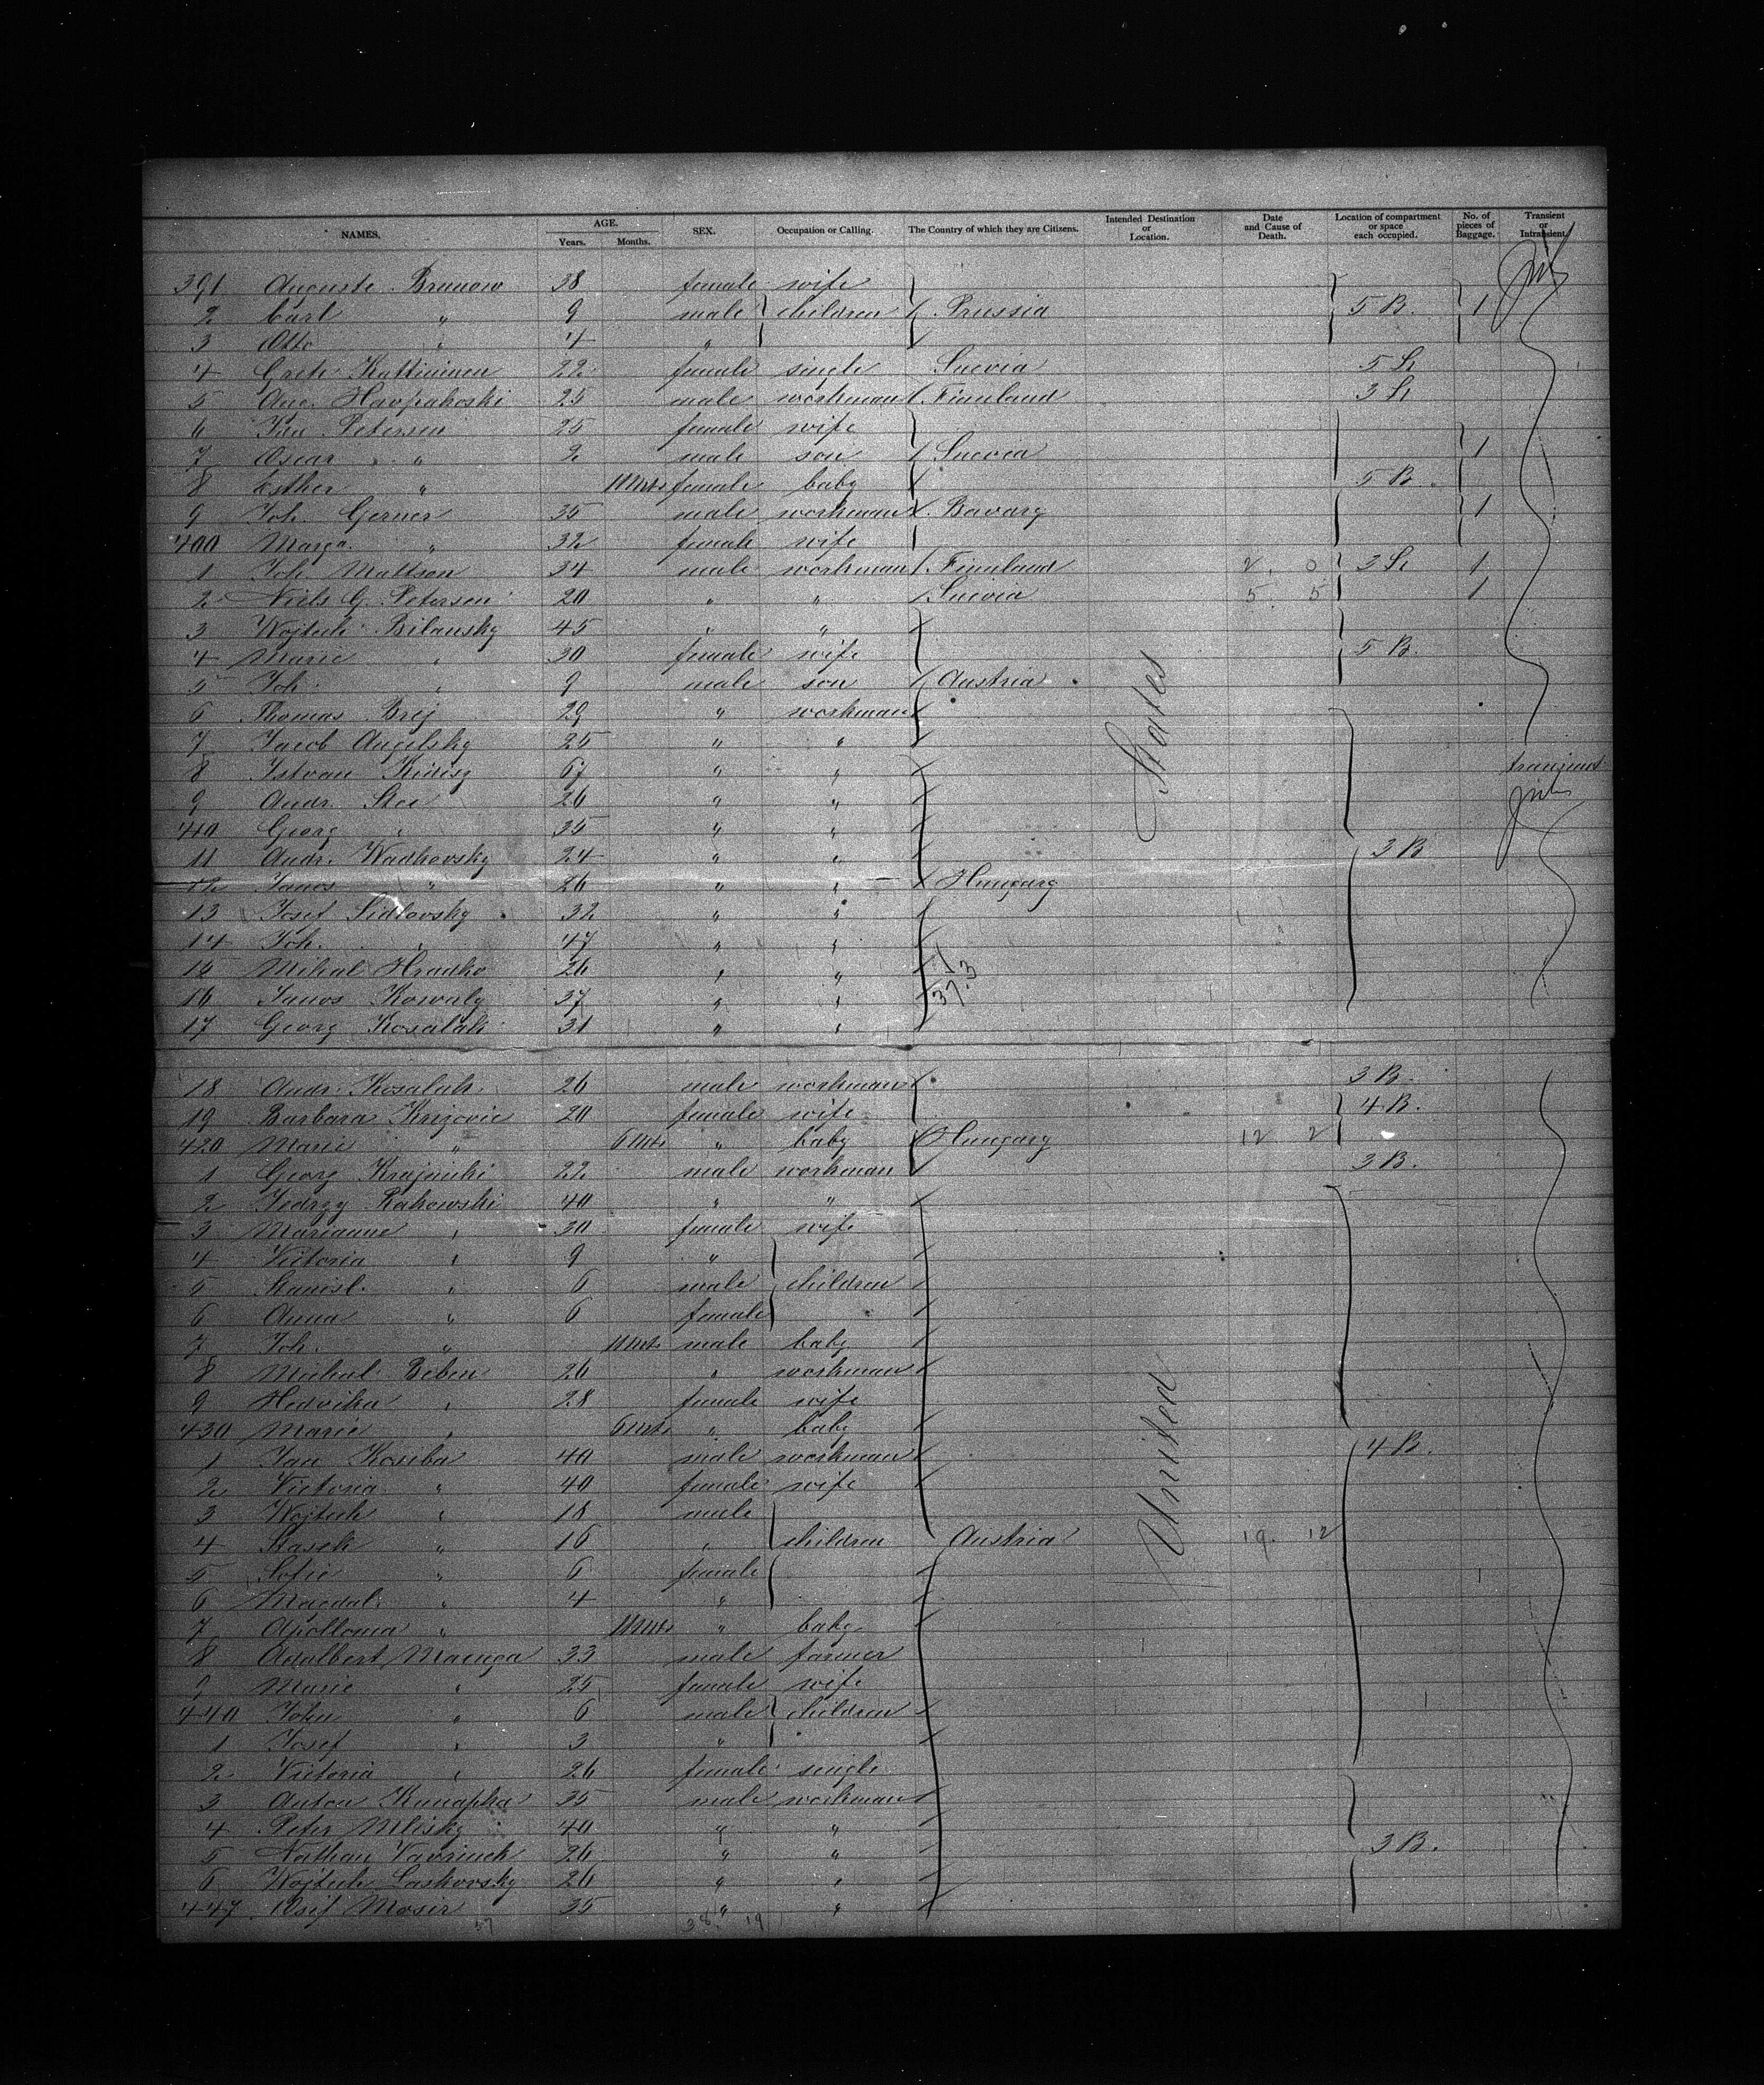 NAMES. AGE. Years. Months. SEX. Occupation or Calling. The Country of which they are Citizens. Intended Destination or Location. Date and Cause of Death. Location of compartment or space each occupied. No. of pieces of Baggage. Transient or Intransient.
391 Auguste Brunow 38 female wife
2 Carl " 9 male children Prussia 5 B. 1
3 Otto " 4 "
4 Grete Kattiainen 22 female single Suecia 5 St
5 Aug. Havpakoski 25 male workman Finnland 3 St
6 Petersen 25 female wife
7 Oscar " 2 male son Suecia 1
8 Esther " 11 Mts female baby 5 B.
9 Joh. Gerner 35 male workman Bavary 1
400 Marga. " 32 female wife
1 Joh. Mattson 34 male workman Finnland 2. 0 3 St 1
2 Niels G. Petersen 20 " " Suecia 5. 5 1
3 Wojtech Bilansky 45 " "
4 Marie " 30 female wife 5 B.
5 Joh. " 9 male son Austria
6 Thomas Brej 29 " workman
7 Jacob Angelsky 25 " "
8 Istvan 67 " " transient
9 Andr. 26 " "
410 Georg " 35 " "
11 Andr. Wadhovsky 24 " " 3 B
12 Janos " 26 " " Hungary
13 Josef Sidlovsky 32 " "
14 Joh. " 47 " "
15 Mihal Hradko 26 " "
16 Janos Kowaly 37 " " 37.3
17 Georg Kosalak 31 " "
18 Andr. Kosalak 26 male workman 3 B.
19 Barbara Krizovic 20 female wife 4 B.
420 Marie " 6 Mts " baby Hungary 12 2
1 Georg Krajnicki 22 male workman 3 B.
2 Jedrzy Rakowski 40 " "
3 Marianne " 30 female wife
4 Victoria " 9 "
5 Stanisl. " 6 male children
6 Anna " 6 female
7 Joh. " 11 Mts male baby
8 Michal Beben 26 " workman
9 Hedvika " 28 female wife
430 Marie " 6 Mts " baby
1 Jan Koseba 40 male workman 4 B.
2 Victoria " 40 female wife
3 Wojtech " 18 male
4 " 16 " children Austria 19. 12
5 Sofie " 6 female
6 Magdal. " 4 "
7 Apollonia " 11 Mts " baby
8 Adalbert Maciuga 33 male farmer
9 Marie " 25 female wife
440 John " 6 male children
1 Josef " 3 "
2 Victoria " 26 female single
3 Anton Knnapka 35 male workman
4 Peter Mlisky 40 " "
5 Nathan Vavrinck 26 " " 3 B.
6 Wojtech Laskovsky 26 " "
447 Osif Mosir 35 " "
57 38. 19
United States